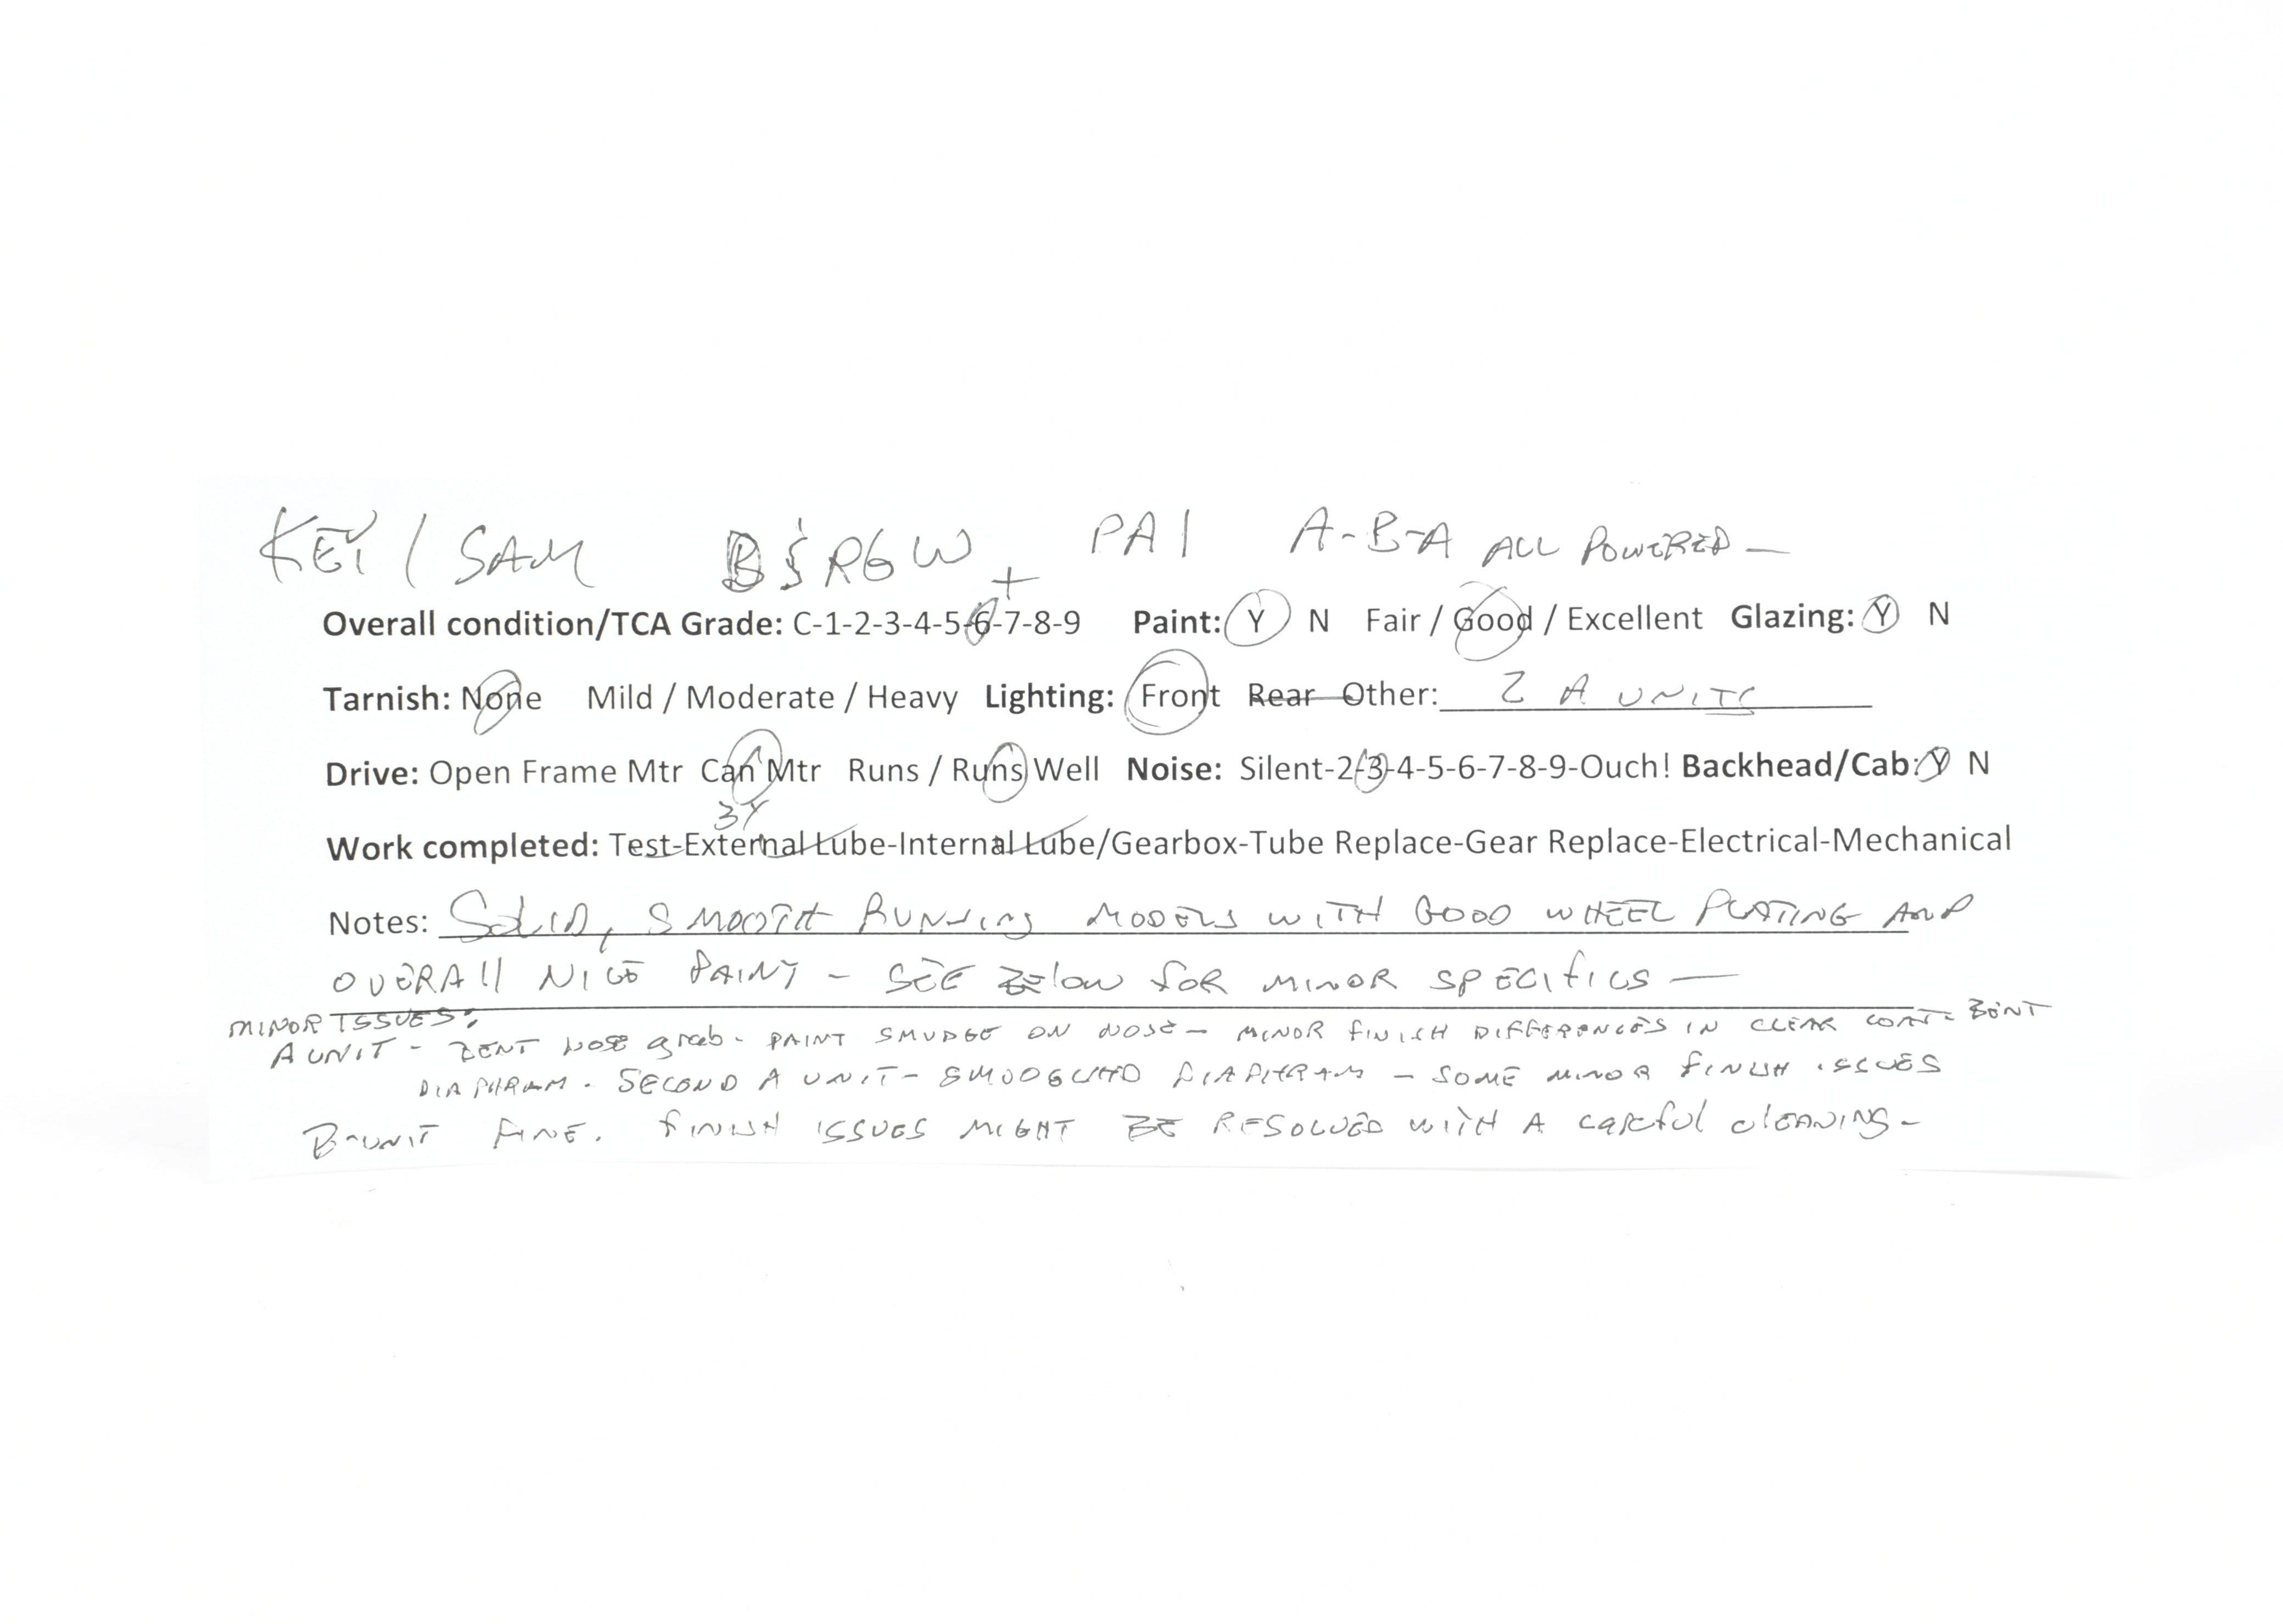 KEY / SAM D&RGW PA1 A-B-A ALL POWERED —
+
Overall condition/TCA Grade: C-1-2-3-4-5-6-7-8-9 Paint: Y N Fair / Good / Excellent Glazing: Y N
Tarnish: None Mild / Moderate / Heavy Lighting: Front Rear Other: 2 A UNITS
Drive: Open Frame Mtr Can Mtr Runs / Runs Well Noise: Silent-2-3-4-5-6-7-8-9-Ouch! Backhead/Cab: Y N
3X
Work completed: Test-External Lube-Internal Lube/Gearbox-Tube Replace-Gear Replace-Electrical-Mechanical
Notes: SOLID, SMOOTH RUNNING MODELS WITH GOOD WHEEL PLATING AND
OVERALL NICE PAINT - SEE Below FOR MINOR SPECIFICS —
MINOR ISSUES:
A UNIT - BENT NOSE grab. PAINT SMUDGE ON NOSE - MINOR FINISH DIFFERENCES IN CLEAR COAT - BENT
DIAPHRAM. SECOND A UNIT - SMOOGHED DIAPHRAM - SOME MINOR FINISH ISSUES
B-UNIT FINE. FINISH ISSUES MIGHT BE RESOLVED WITH A careful cleaning -